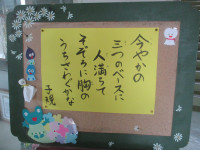 今やかの
三つのベースに
人満ちて
そゞろに胸の
うちさわぐかな
子規